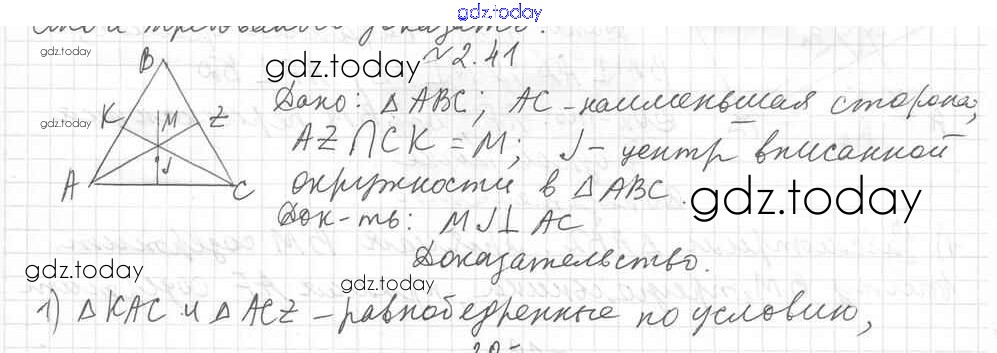 gdz.today
что и требовалось доказать.
gdz.today
№2.41
gdz.today
B
K M Z
J
A C
Дано: △ABC; AC - наименьшая сторона;
AZ ∩ CK = M; J - центр вписанной
окружности в △ABC.
gdz.today
Док-ть: MJ ⊥ AC
Доказательство.
gdz.today
gdz.today
1) △KAC и △ACZ - равнобедренные по условию,